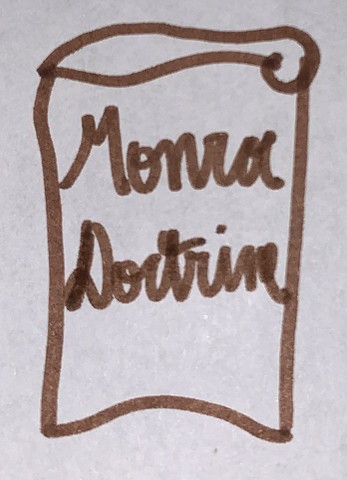 Monroe
Doctrine